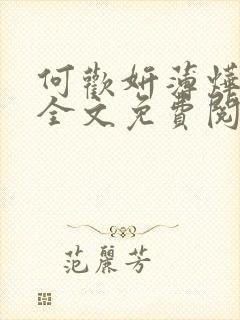 何歡妍薄燁
全文免費閱
范麗芳